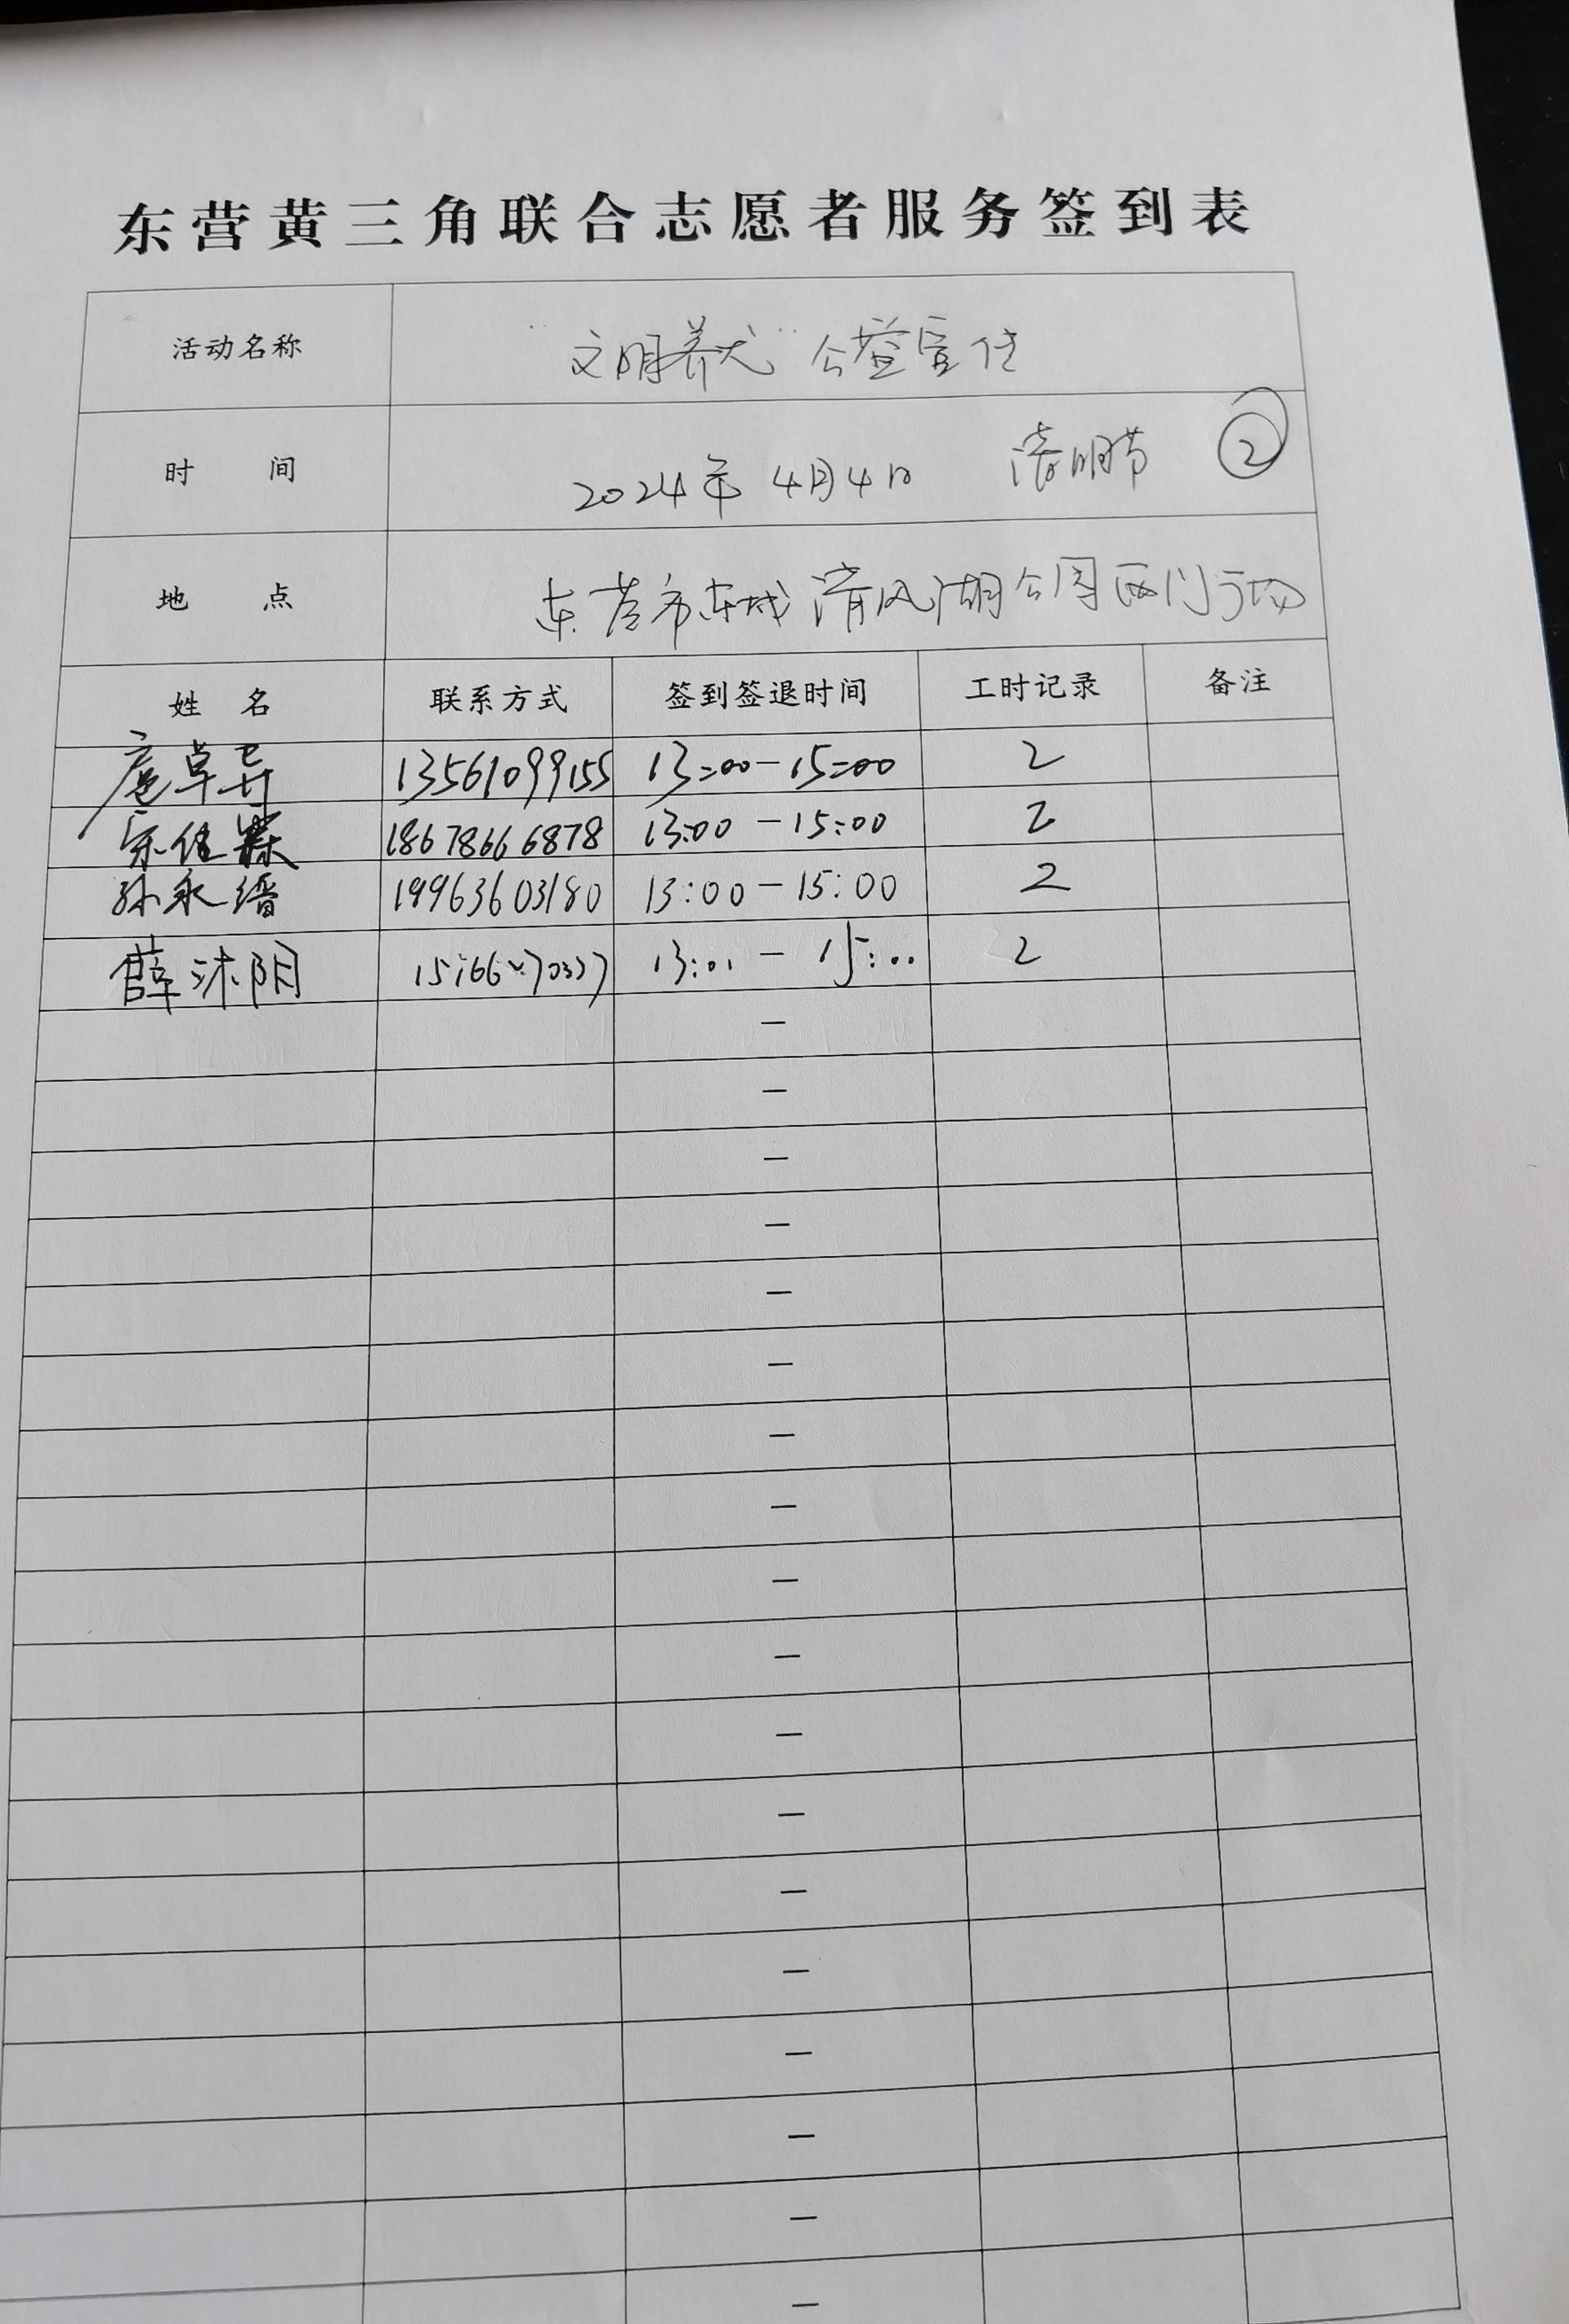 东营黄三角联合志愿者服务签到表
活动名称 "文明养犬"公益宣传
时间 2024年4月4日 清明节 ②
地点 东营市东城清风湖公园西门广场
姓名 联系方式 签到签退时间 工时记录 备注
庞卓异 13561099155 13:00-15:00 2
宋佳霖 18678666878 13:00-15:00 2
孙永缙 19963603180 13:00-15:00 2
薛沐阴 13:01-15:00 2
—
—
—
—
—
—
—
—
—
—
—
—
—
—
—
—
—
—